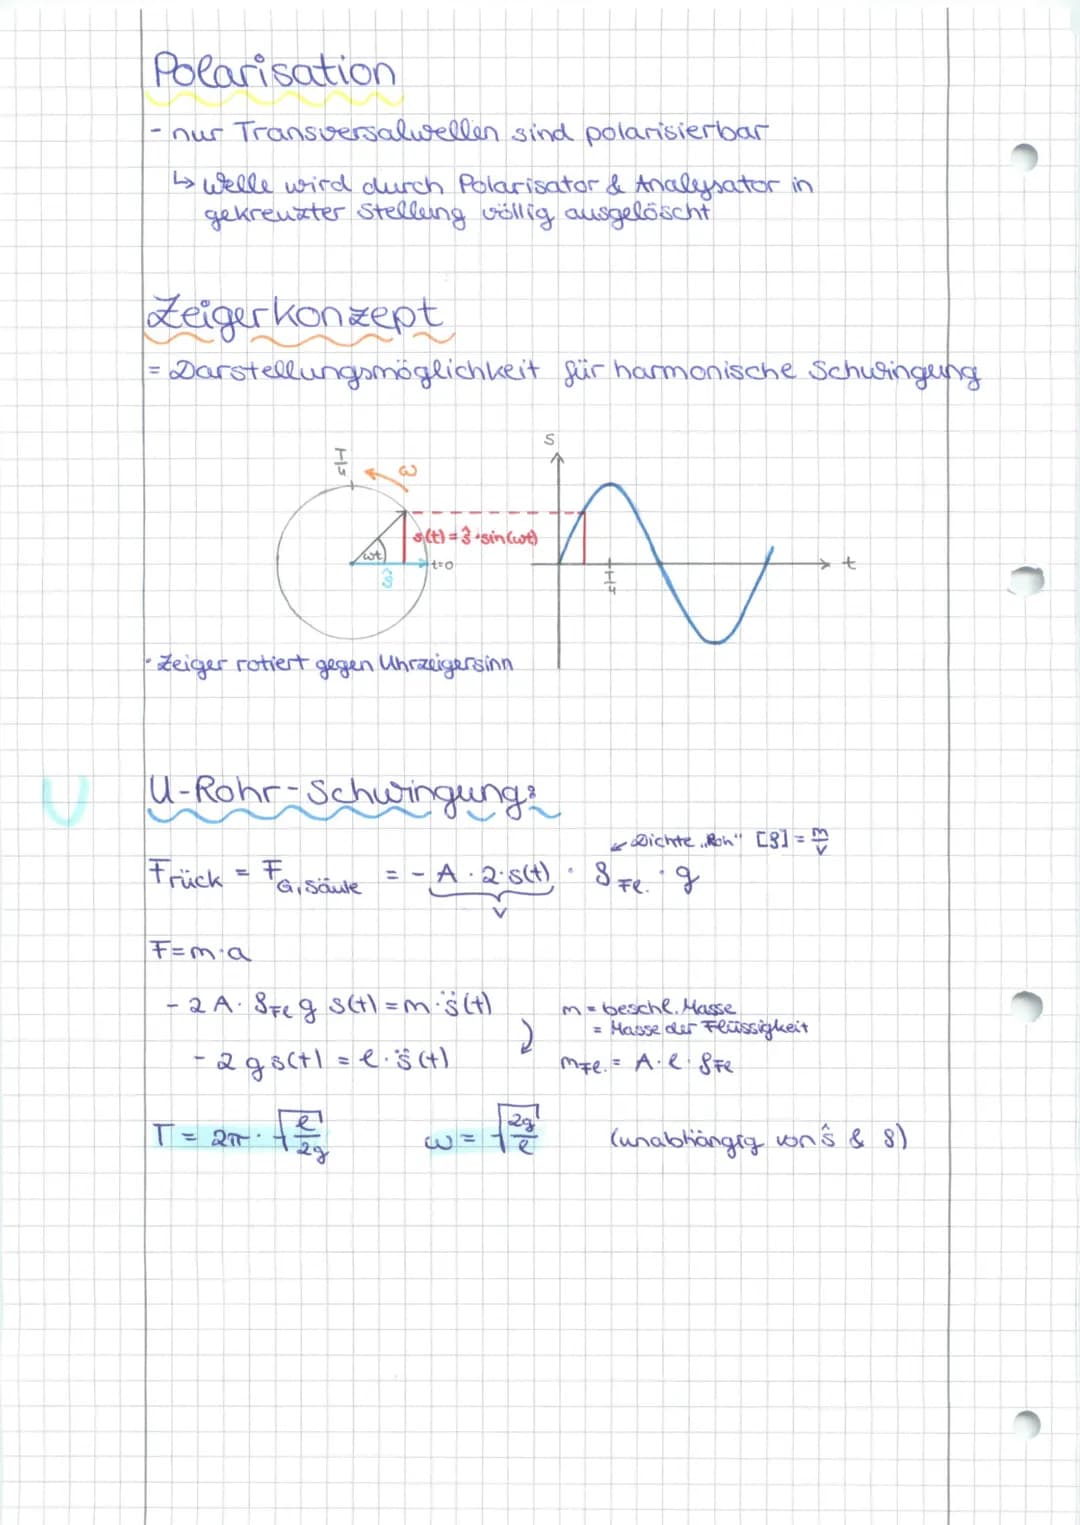 Polarisation
- nur Transversalwellen sind polarisierbar
↳ Welle wird durch Polarisator & Analysator in
gekreuzter Stellung völlig ausgelöscht
Zeigerkonzept
= Darstellungsmöglichkeit für harmonische Schwingung
T/4
ω
s
s(t) = ŝ · sin(ωt)
ωt
t=0
ŝ
T/4
t
· Zeiger rotiert gegen Uhrzeigersinn
U
U-Rohr-Schwingung:
↙ Dichte „Roh" [ρ] = m/V
F_rück = F_G,Säule = - A · 2·s(t) · ρ_Fl. · g
V
F=m·a
- 2 A · ρ_Fl g s(t) = m · s̈(t)
m = beschl. Masse
= Masse der Flüssigkeit
- 2 g s(t) = l · s̈(t)
m_Fl. = A · l · ρ_Fl
T = 2π · √(l/2g)
ω = √(2g/l)
(unabhängig von ŝ & ρ)